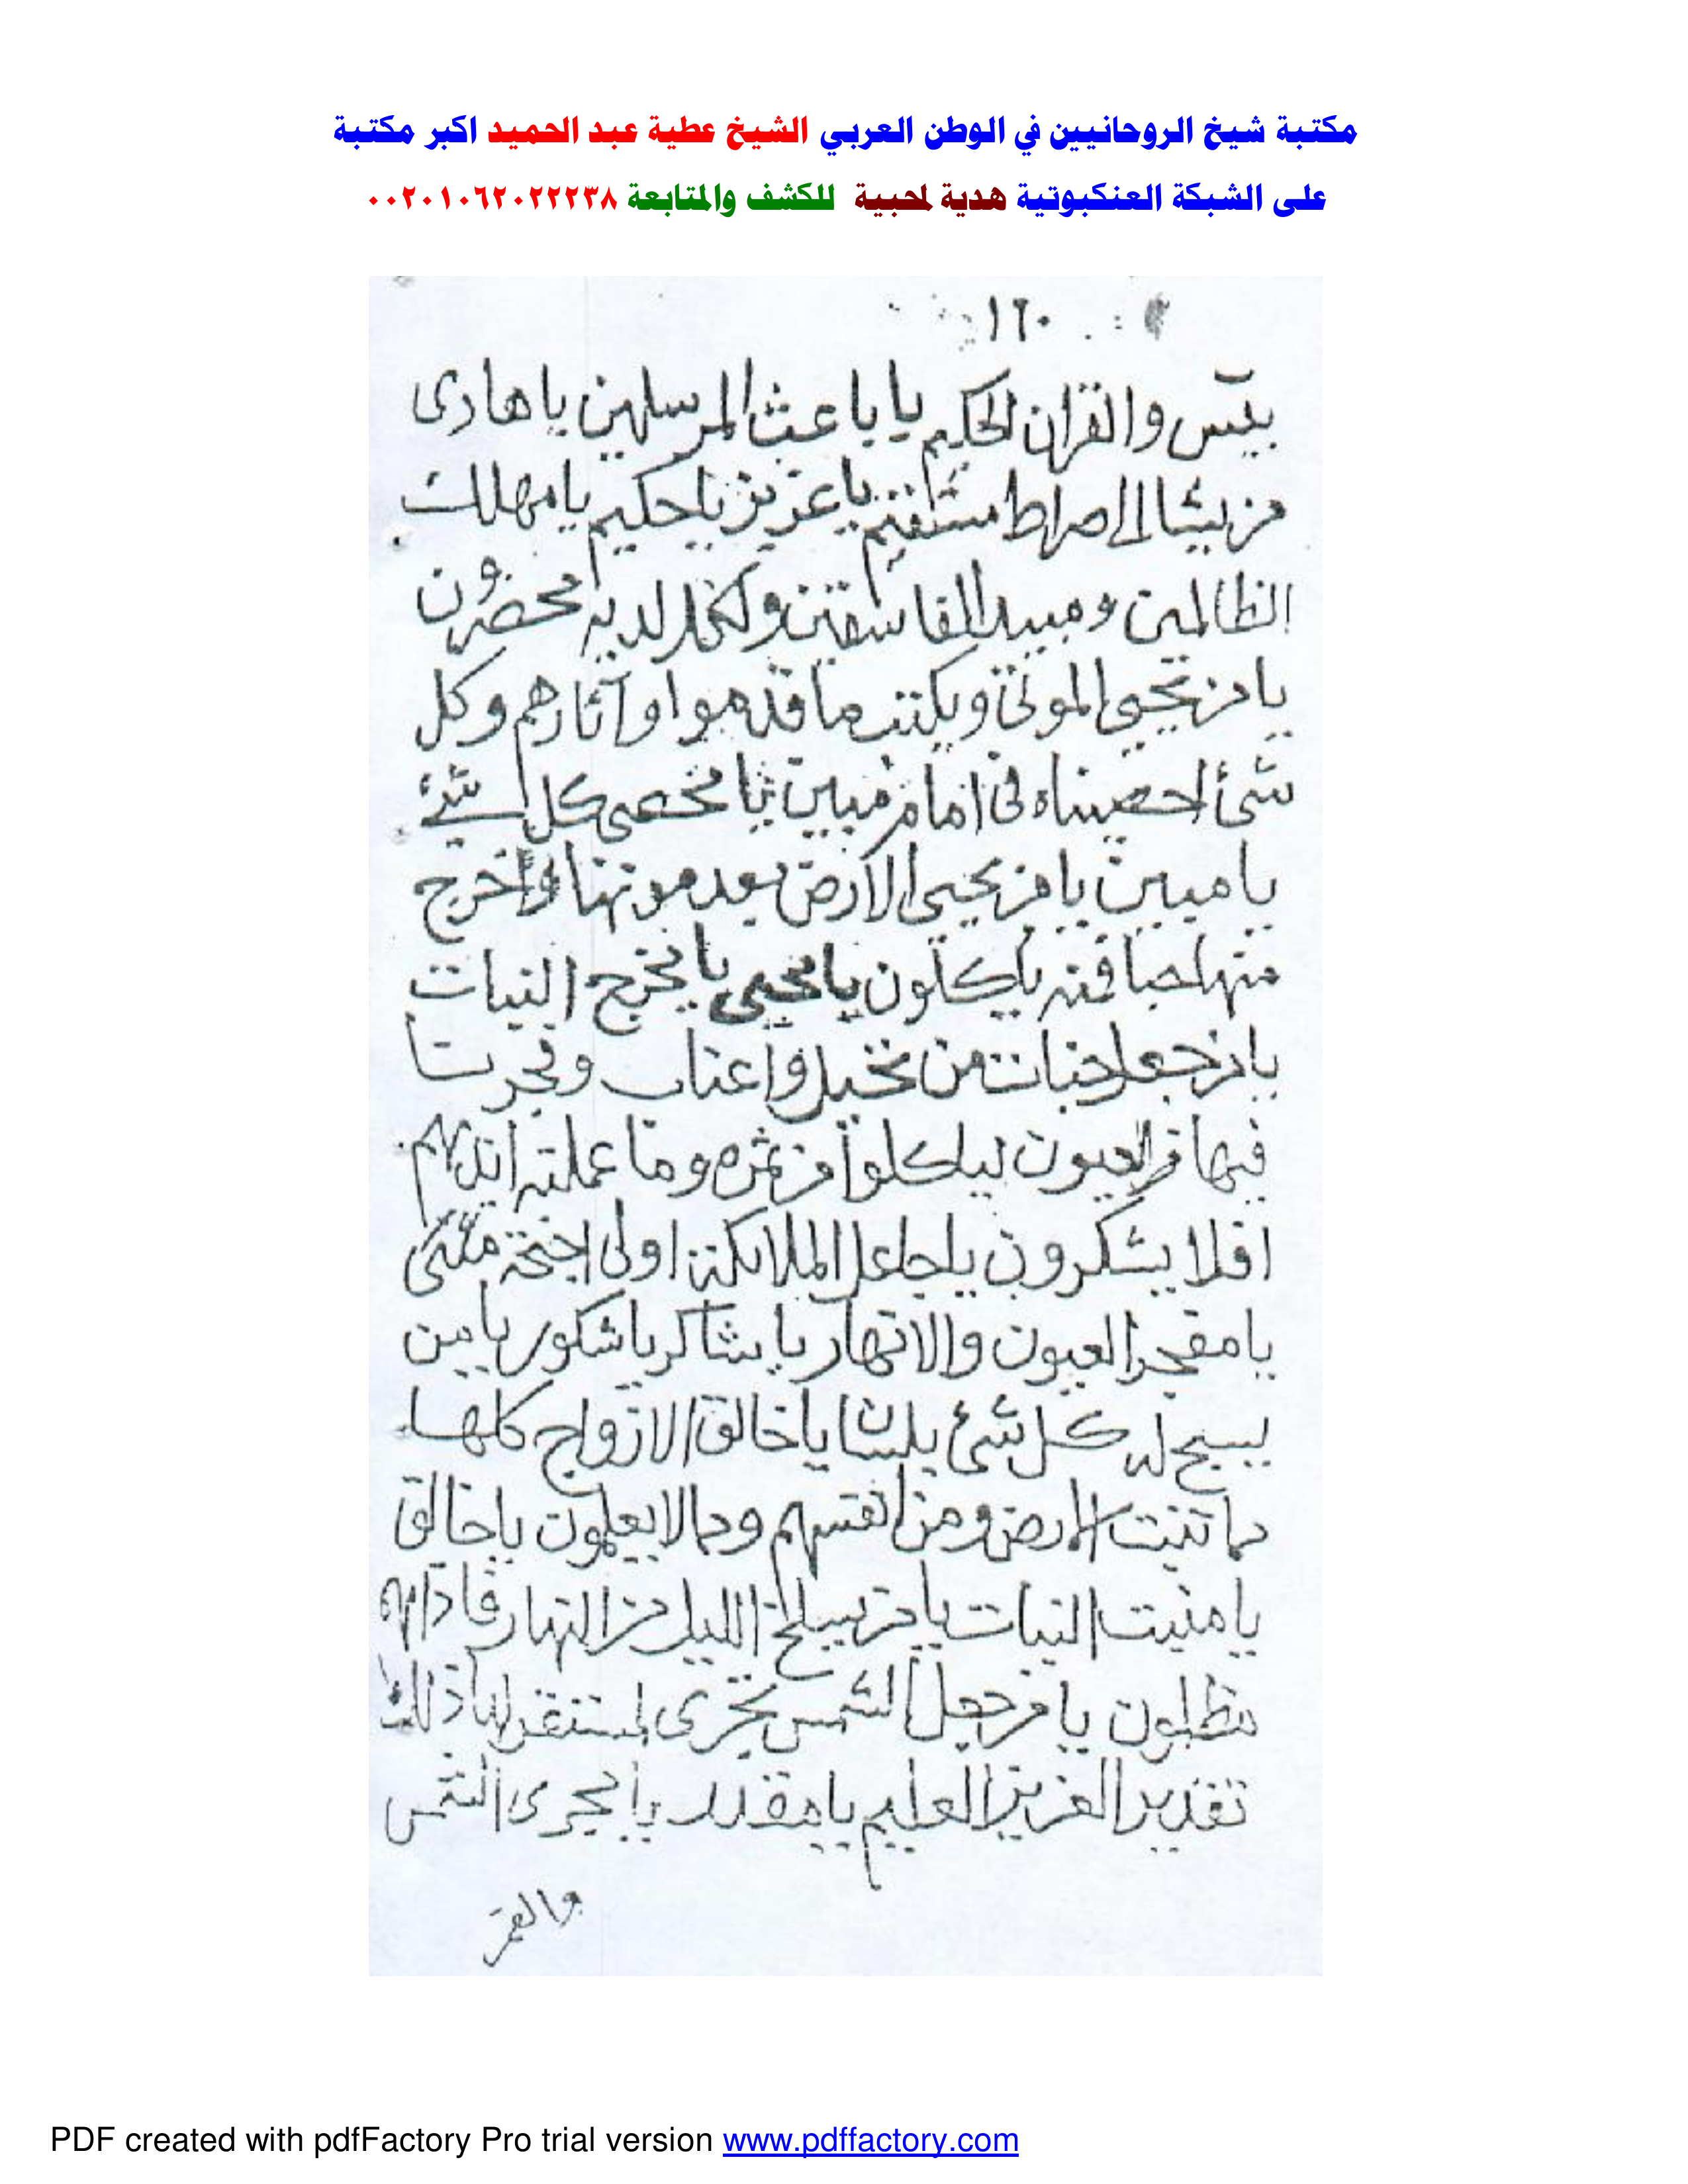 مكتبة شيخ الروحانيين في الوطن العربي الشيخ عطية عبد الحميد اكبر مكتبة
على الشبكة العنكبوتية هدية لمحبية للكشف والمتابعة ٠٠٢٠١٠٦٢٠٢٢٢٣٨
١٦٠
بيس والقران الحكيم يا باعث المرسلين يا هادى
من يشا الى صراط مستقيم يا عزيز يا حكيم يا مهلك
الظالمين ومبيد الفاسقين وكل لديه محضرون
يا من يحيى الموتى ويكتب ما قدموا وآثارهم وكل
شئ احصيناه فى امام مبين يا محصى كل شئ
يا مبين يا من يحيى الارض بعد موتها واخرج
منها حبا فمنه ياكلون يا محيى يا مخرج النبات
يا من جعل جنات من نخيل واعناب وفجرنا
فيها من العيون لياكلوا من ثمره وما عملته ايديهم
افلا يشكرون يا جاعل الملائكة اولى اجنحة مثنى
يا مفجر العيون والانهار يا شاكر يا شكور يا من
يسبح له كل شئ بلسان يا خالق الازواج كلها
مما تنبت الارض ومن انفسهم ومما لا يعلمون يا خالق
يا منبت النبات يا من يسلخ الليل من النهار فاذا هم
مظلمون يا من جعل الشمس تجرى لمستقر لها ذلك
تقدير العزيز العليم يا مقدر يا مجرى الشمس
والقمر
PDF created with pdfFactory Pro trial version www.pdffactory.com